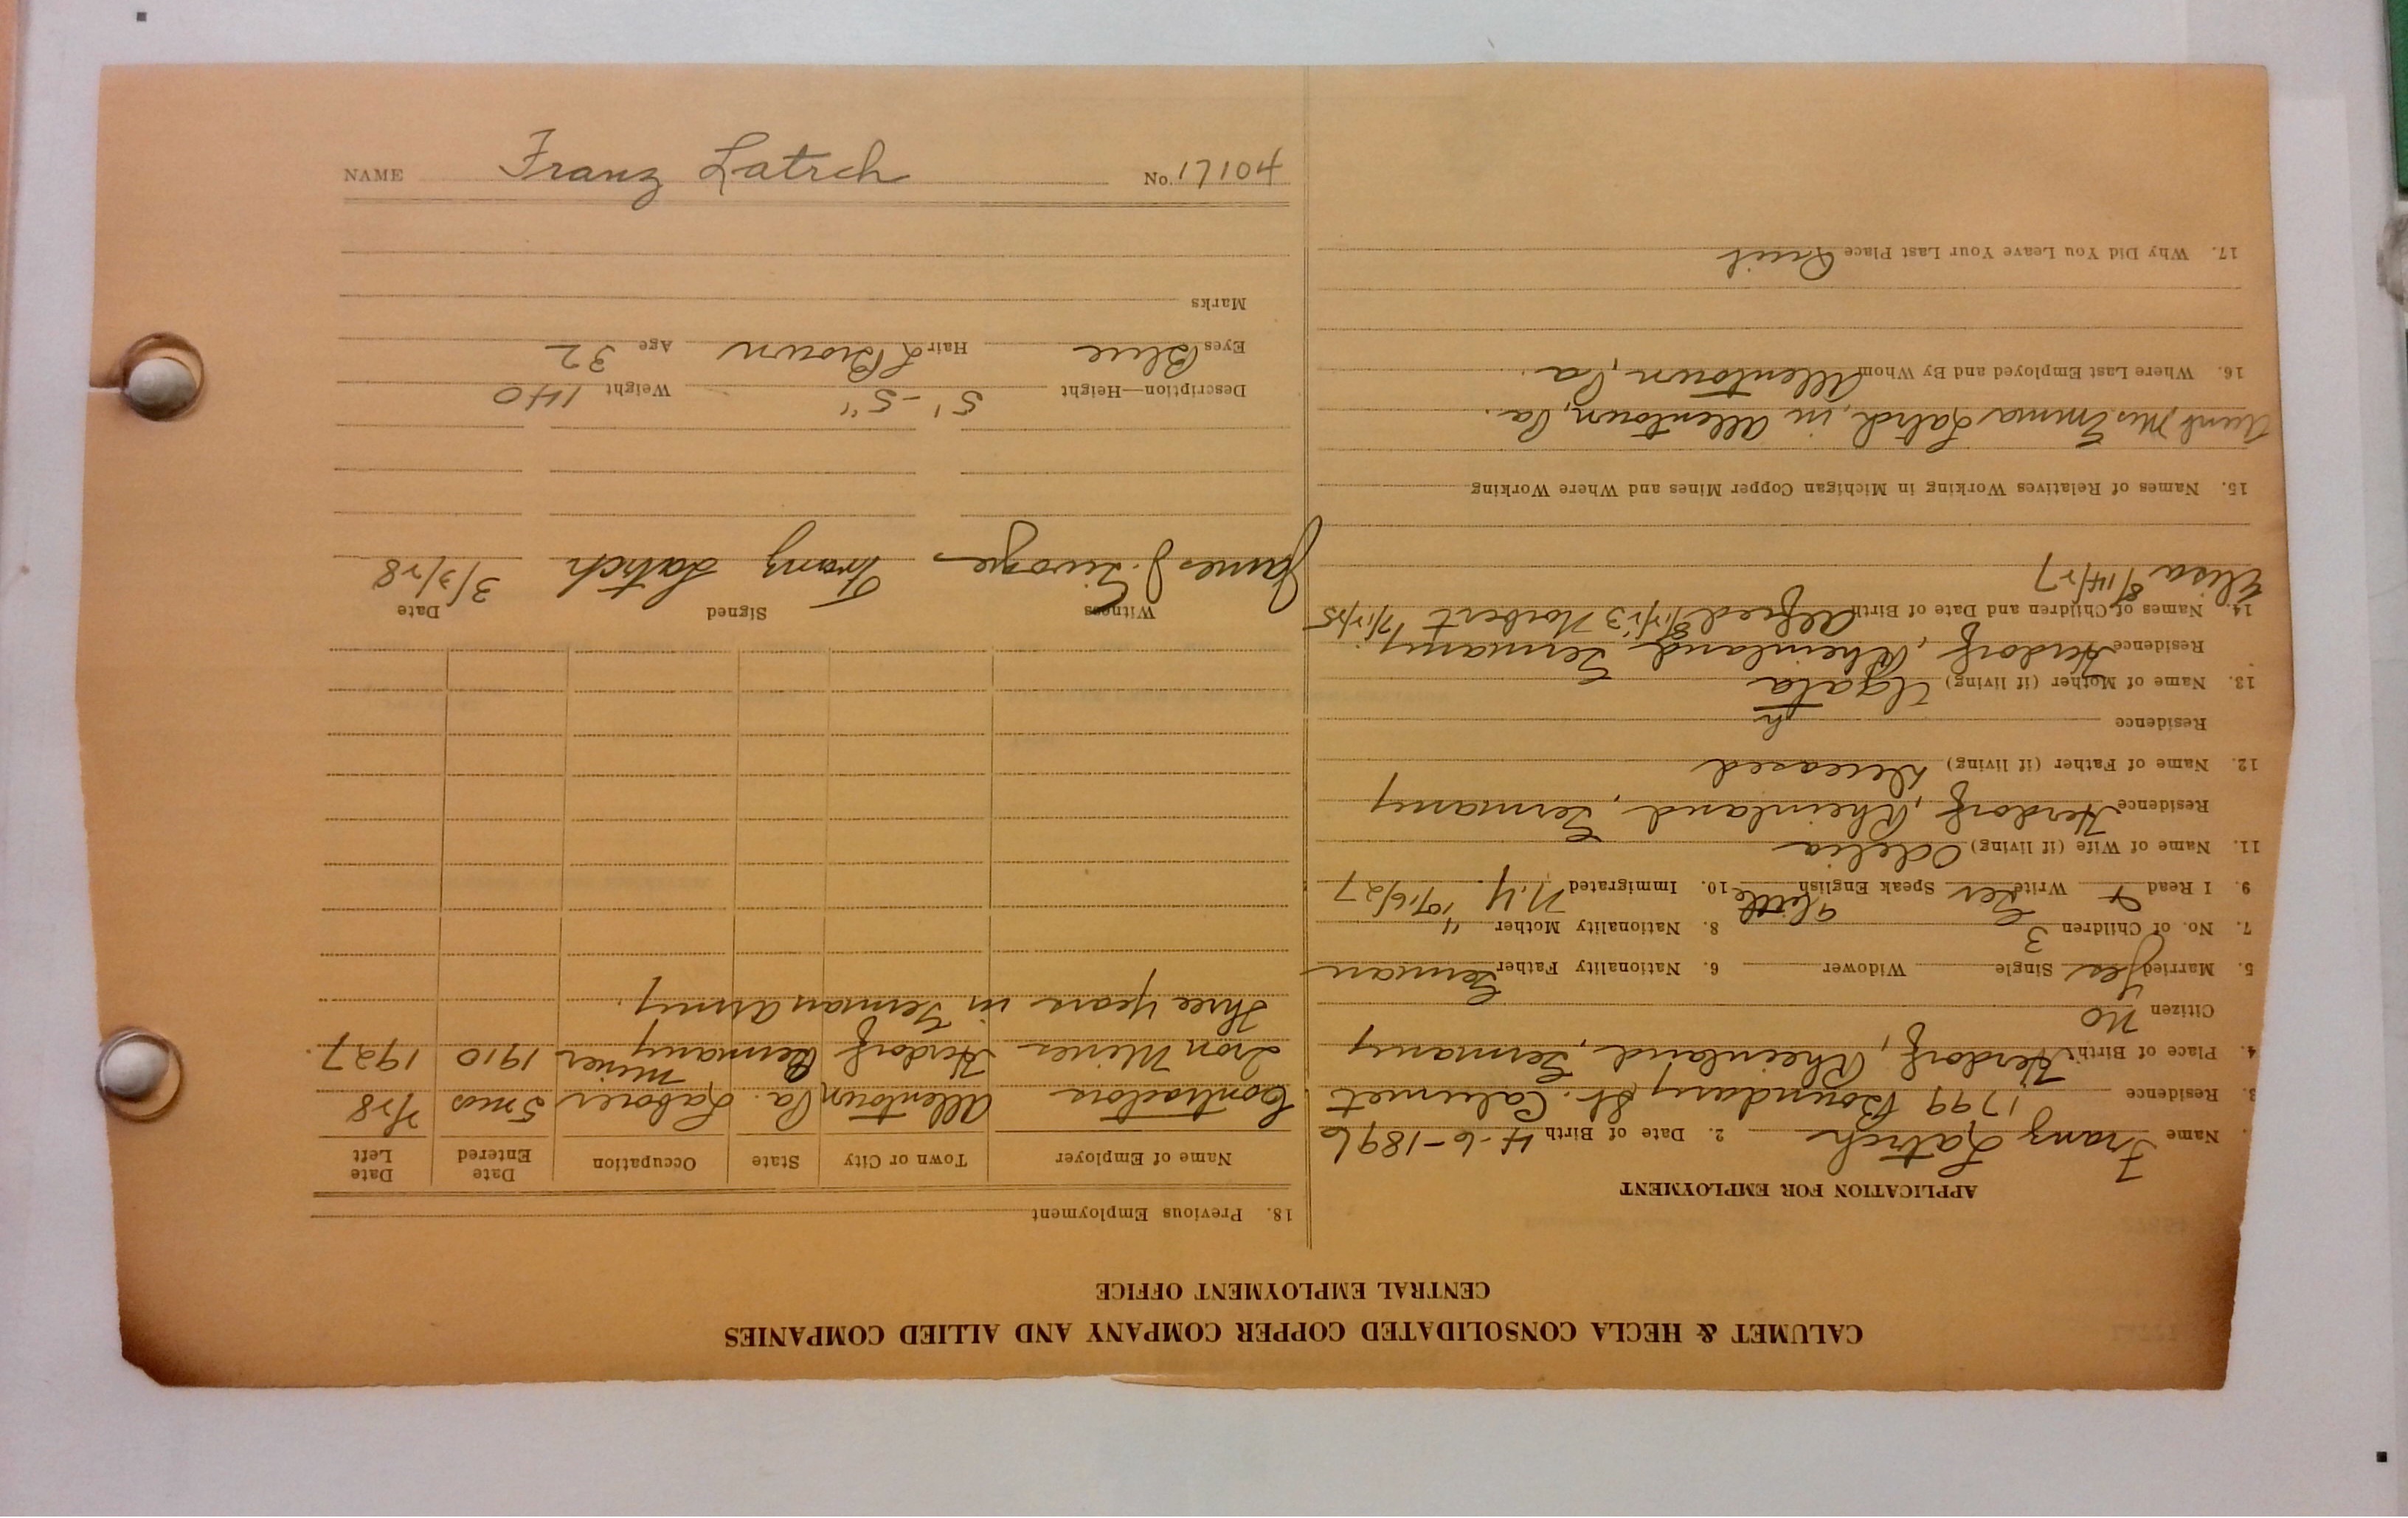 NAME Franz Latsch No. 17104
CALUMET & HECLA CONSOLIDATED COPPER COMPANY AND ALLIED COMPANIES
CENTRAL EMPLOYMENT OFFICE
APPLICATION FOR EMPLOYMENT
Name Franz Latsch 2. Date of Birth 4-6-1896
3. Residence 1799 Boundary St. Calumet
4. Place of Birth Herdorf, Rheinland, Germany
Citizen no
5. Married Yes Single Widower 6. Nationality Father German
7. No. of Children 3 8. Nationality Mother "
9. I Read & Write Ger Speak English little 10. Immigrated N.Y. 10/16/27
11. Name of Wife (if living) Odelia
Residence Herdorf, Rheinland, Germany
12. Name of Father (if living) Deceased
Residence
13. Name of Mother (if living) Agata
h
Residence Herdorf, Rheinland Germany.
14. Names of Children and Date of Birth Alfred 8/12/23 Norbert 7/12/25
Elisa 8/14/27
15. Names of Relatives Working in Michigan Copper Mines and Where Working
Aunt Mrs Emma Latsch, in Allentown, Pa.
16. Where Last Employed and By Whom Allentown, Pa.
17. Why Did You Leave Your Last Place Quit
18. Previous Employment
Name of Employer Town or City State Occupation Date Entered Date Left
Contractors Allentown Pa. Laborer 5 mos 2/28
Iron Mines Herdorf Germany miner 1910 1927.
Three years in German army.
Witness Signed Date
James J. Franz Latsch 3/3/28
Description—Height 5'-5" Weight 140
Eyes Blue Hair L Brown Age 32
Marks